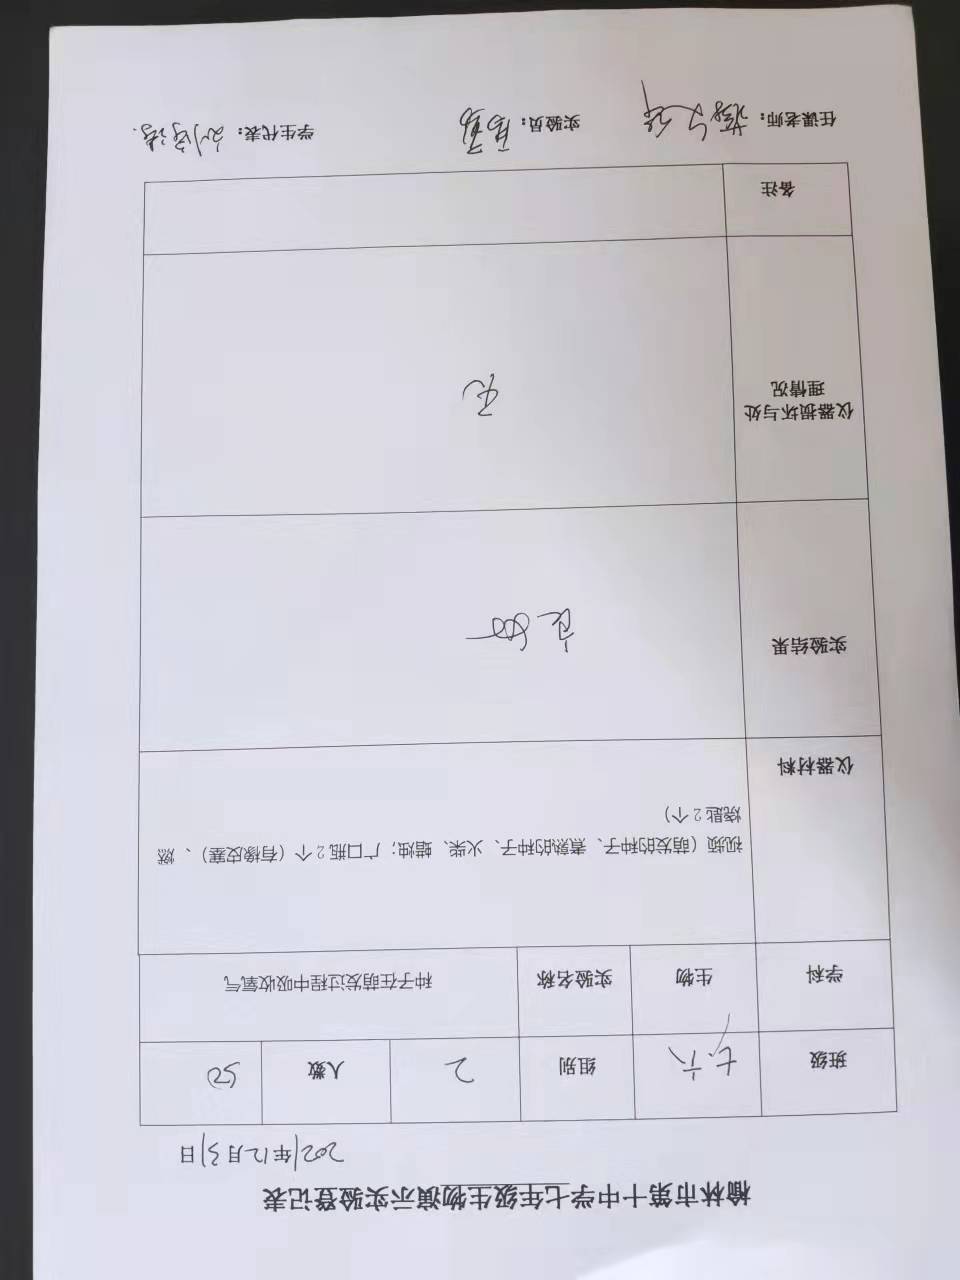 榆林市第十中学七年级生物演示实验登记表
2021年12月31日
班级 七.六 组别 2 人数 50
学科 生物 实验名称 种子在萌发过程中吸收氧气
仪器材料 视频（萌发的种子、煮熟的种子、火柴、蜡烛；广口瓶2个（有橡皮塞）、燃
烧匙2个）
实验结果 良好
仪器损坏与处
理情况 无
备注
任课老师： 实验员： 学生代表：